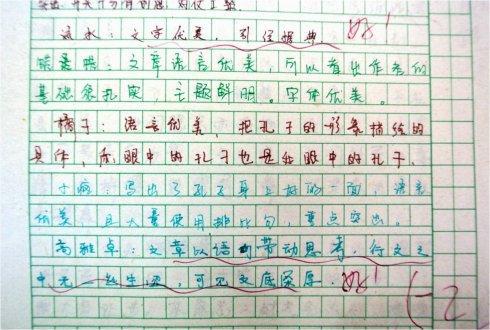 流水：文字优美，引经据典。 好！
文章语言优美，可以看出作者的
基础很扎实，主题鲜明。字体优美。
橘子：语言优美，把孔子的形象描绘的
具体，你眼中的孔子也是我眼中的孔子。
写出了孔子身上好的一面，语言
优美，且大量使用排比句，重点突出。
高雅卓：文章以语句带动思考，行文之
中无一丝生涩，可见文底深厚。 好！